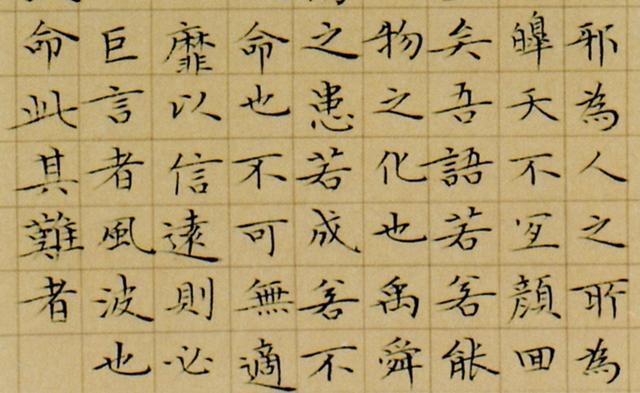 邪為人之所為
皞天不宜顏回
矣吾語若若能
物之化也禹舜
之患若成若不
命也不可無適
靡以信遠則必
巨言者風波也
命此其難者